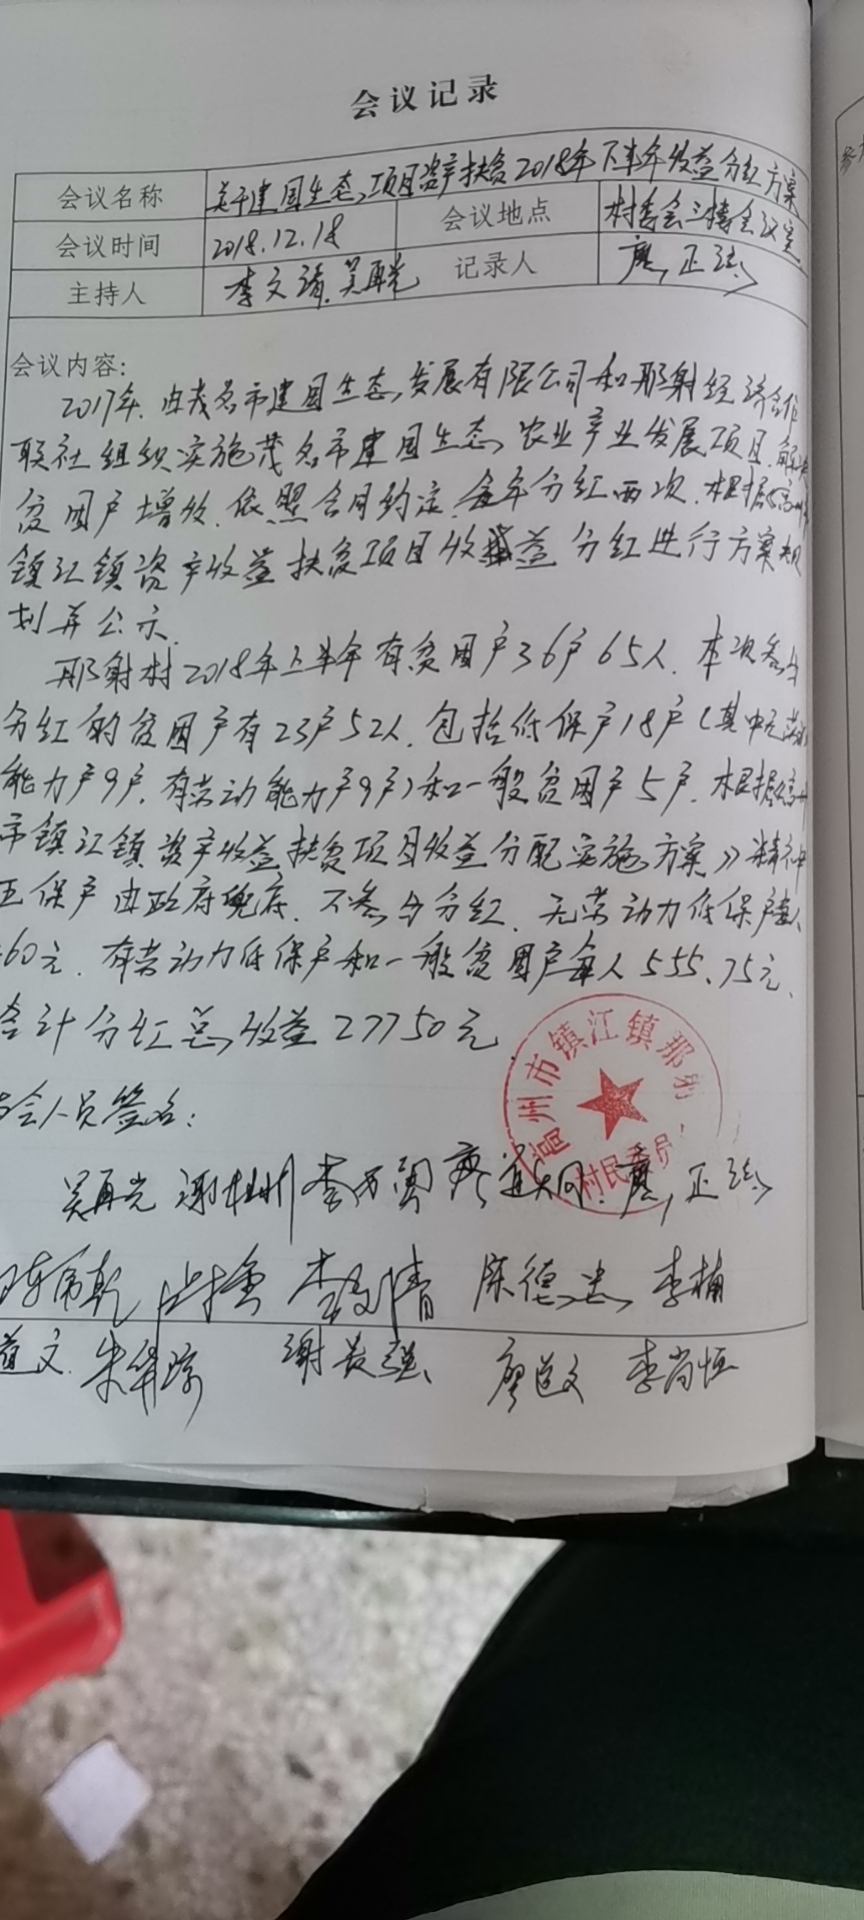 会议记录
会议名称 关于建国生态项目资产扶贫2018年下半年收益分红方案
会议时间 2018.12.18 会议地点 村委会三楼会议室
主持人 李文清、吴再光 记录人 廖正
会议内容:
2017年.由茂名市建国生态发展有限公司和那射经济合作
联社组织实施茂名市建国生态农业产业发展项目.解决
贫困户增收.依照合同约定.每年分红两次.根据《高州
镇江镇资产收益扶贫项目收益分红进行方案规
划并公示.
那射村2018年下半年有贫困户36户65人.本次参与
分红的贫困户有23户52人.包括低保户18户(其中无劳动
能力户9户.有劳动能力户9户)和一般贫困户5户.根据《高州
市镇江镇资产收益扶贫项目收益分配实施方案》精神
五保户由政府兜底.不参与分红.无劳动力低保户每人
60元.有劳动力低保户和一般贫困户每人555.75元.
合计分红总收益27750元
高州市镇江镇那射
村民委员
与会人员签名:
吴再光 李万 廖 廖正
李文清 陈德忠 李楠
道文 朱华 谢 强 廖道文 李尚恒